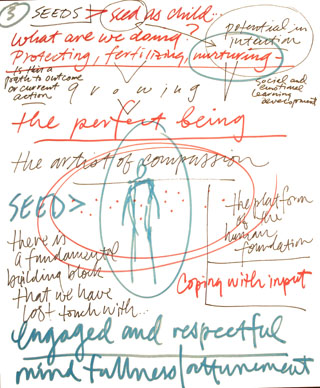 3
SEEDS > seed as child...
What are we doing?
Protecting, fertilizing, nurturing -
potential in
intuition
is this a
path to outcome
or current
action
growing
social and
emotional
learning
development
the perfect being
the artist of compassion
SEED >
the platform
of the
human
foundation
there is
a fundamental
building block
that we have
lost touch with...
Coping with input
engaged and respectful
mindfullness/attunement